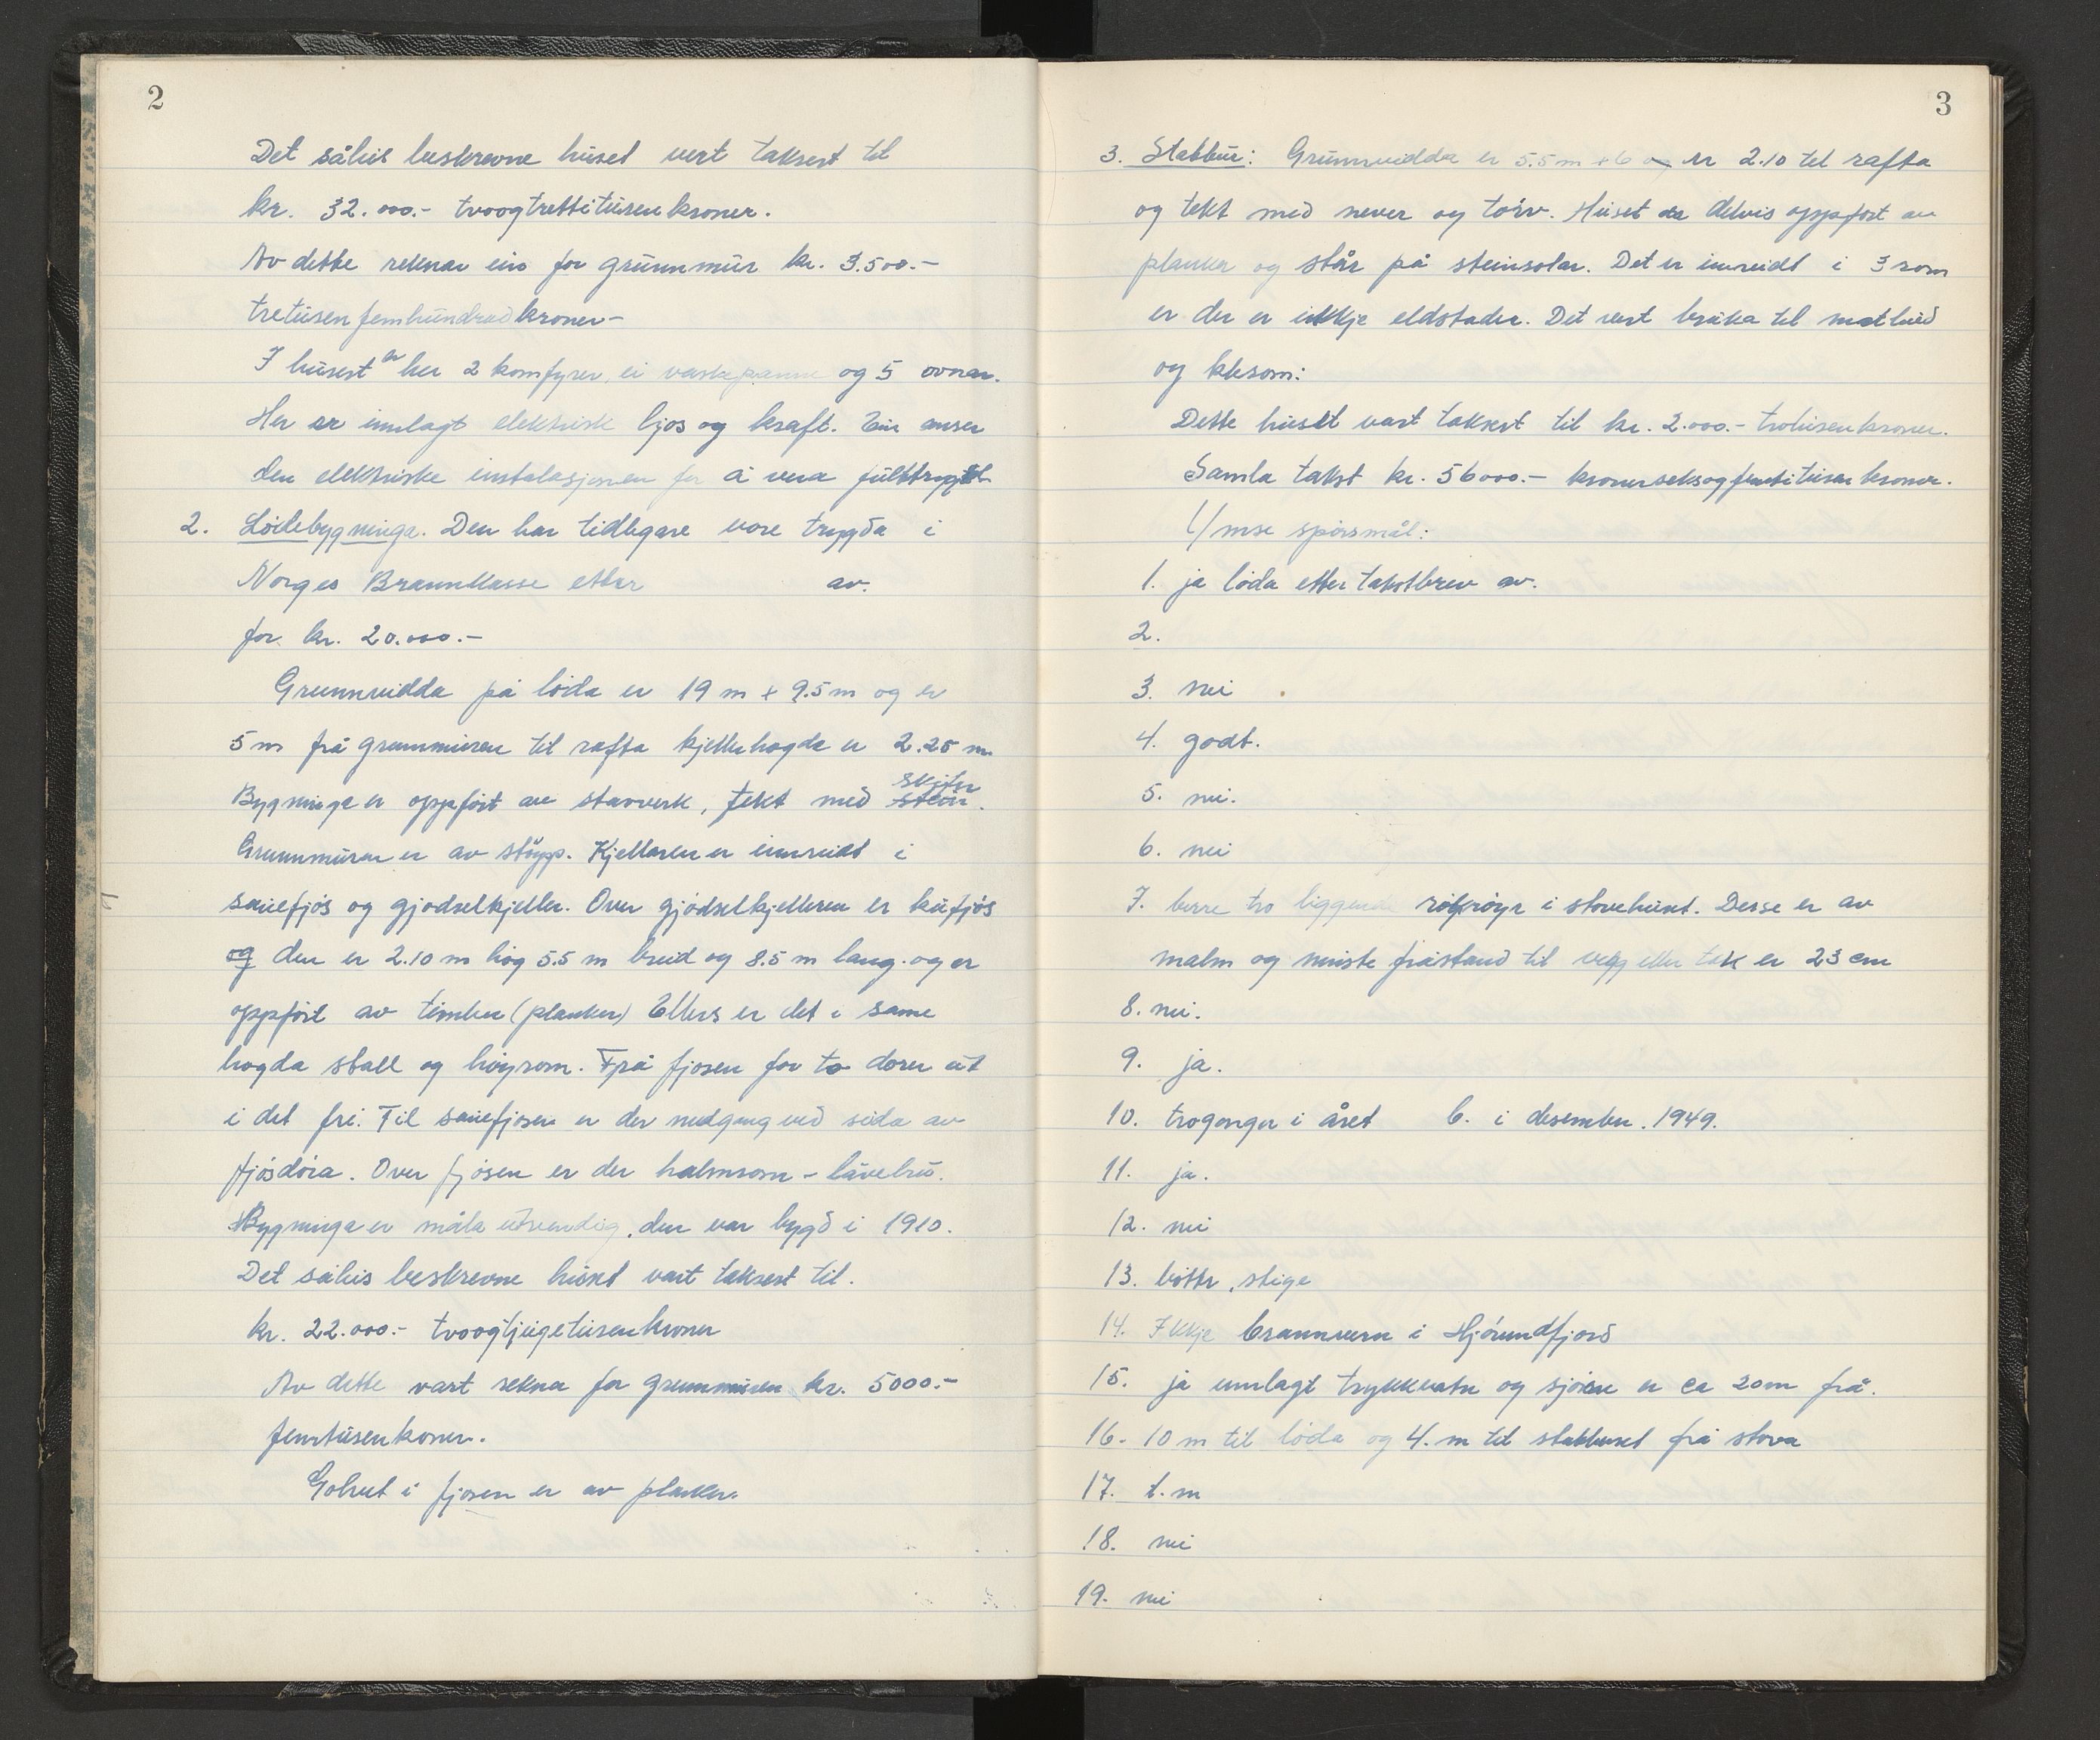 2
Det såleis beskrevne huset vert taksert til
kr. 32.000.- tvoogtrettitusenkroner.
Av dette reknar ein for grunnmur kr. 3.500.-
tretusenfemhundradkroner-
I husest er her 2 komfyrer, ei vaskepanne og 5 ovnar.
Her er innlagt elektrisk ljos og kraft. Ein anser
den elektriske instalasjonen for å vera fullttrygt
2. Löebygninga. Den har tidlegare vore trygda i
Norges Brannkasse etter av.
for kr. 20.000.-
Grunnvidda på löda er 19 m x 9.5 m og er
5 m frå grunnmuren til rafta kjellerhogda er 2.25 m
Bygninga er oppfört av stavverk, tekt med stein skifer.
Grunnmuren er av stöypp. Kjellaren er innreidt i
sauefjös og gjodselkjeller. Over gjödselkjelleren er kufjös
og den er 2.10 m hög 5.5 m breid og 8.5 m lang. og er
oppfört av timber (planker) Ellers er det i same
hogda stall og höyrom. Frå fjosen for to dorer ut
i det fri. Til sauefjosen er der nedgang ved sida av
fjösdöra. Over fjösen er der halmrom - låvebru.
Bygninga er måla utvendig, den var bygd i 1910.
Det såleis beskrevne huset vart taksert til.
kr. 22.000.- tvoogtjugetusenkroner
Av dette vart rekna for grunnmuren kr. 5000.-
femtusenkoner.
Golvet i fjosen er av planker.
3
3. Stabbur: Grunnvidda er 5.5 m x 6 og er 2.10 til rafta
og tekt med never og torv. Huset er delvis oppfört av
planker og står på steinsolar. Det er innreidt i 3 rom
er der er ikkje eldstader. Det vert bruka til matbud
og klesrom:
Dette huset vart taksert til kr. 2.000.- totusenkroner.
Samla takst kr. 56000.- kronerseksogfemtitusenkroner.
Ymse spörsmål:
1. ja löda etter takstbrev av.
2.
3. nei
4. godt.
5. nei.
6. nei
7. berre tvo liggende rökröyr i stovehuset. Desse er av
malm og minste fråstand til vegg eller tak er 23 cm
8. nei.
9. ja.
10. tvogonger i året b. i desember. 1949.
11. ja.
12. nei
13. bötter, stige
14. Ikkje brannvern i Hjörundfjord
15. ja innlagt trykkvatn og sjöen er ca 20m frå.
16. 10 m til löda og 4. m til stabburet frå stova
17. t. m
18. nei
19. nei